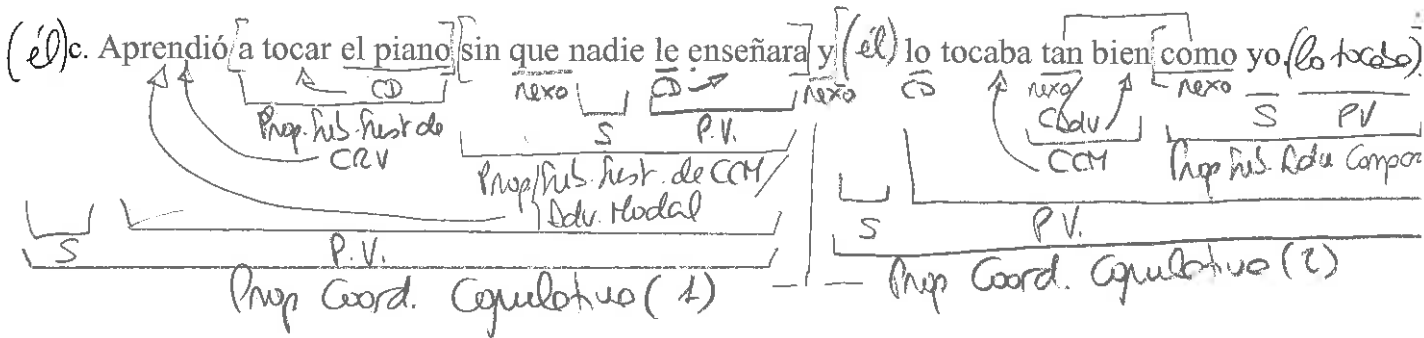 (él) c. Aprendió [a tocar el piano] [sin que nadie le enseñara] y (él) lo tocaba tan bien [como yo (lo tocaba)
CD nexo CD nexo CD nexo nexo
Prop. Sub. Sust de S P.V. CAdv S PV
CRV Prop/Sub. Sust. de CCM/ CCM Prop Sub. Adv Compar
Adv. Modal
S P.V. S P.V.
Prop Coord. Copulativa (1) Prop Coord. Copulativa (2)